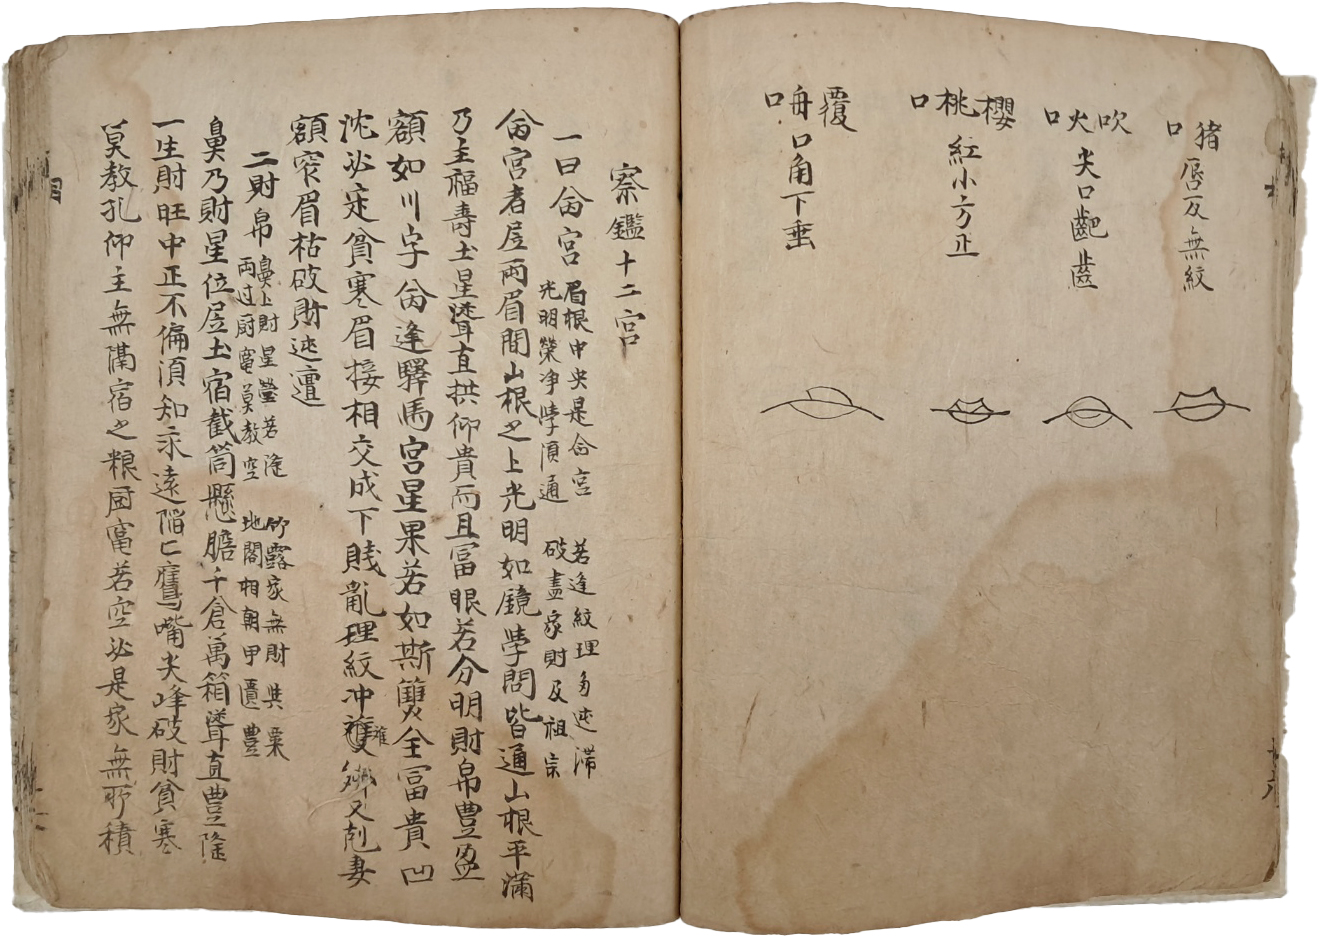 猪口 唇反無紋
吹火口 尖口齙齒
櫻桃口 紅小方正
覆舟口 口角下垂
察鑑十二宮
一曰侖宮 眉根中央是合宮 若逢紋理多迍滯
光明榮净學須通 破盡家財及祖宗
侖宮者居兩眉間山根之上光明如鏡學問皆通山根平滿
乃主福壽土星聳直拱仰貴而且冨眼若分明財帛豊盈
額如川字侖逢驛馬宮星果若如斯雙全冨貴凹
沈必定貧寒眉接相交成下賤亂理紋冲雙離鄉又剋妻
額窄眉枯破財迍邅
二財帛 鼻上財星瑩若隆 仰露家無財共粟
兩过厨竃莫教空 地閣相朝甲匱豊
鼻乃財星位居土宿截筒懸膽千倉萬箱聳直豊隆
一生財旺中正不偏湏知永遠稲亡鷹嘴尖峰破財貧寒
莫教孔仰主無隔宿之粮厨竃若空必是家無所積